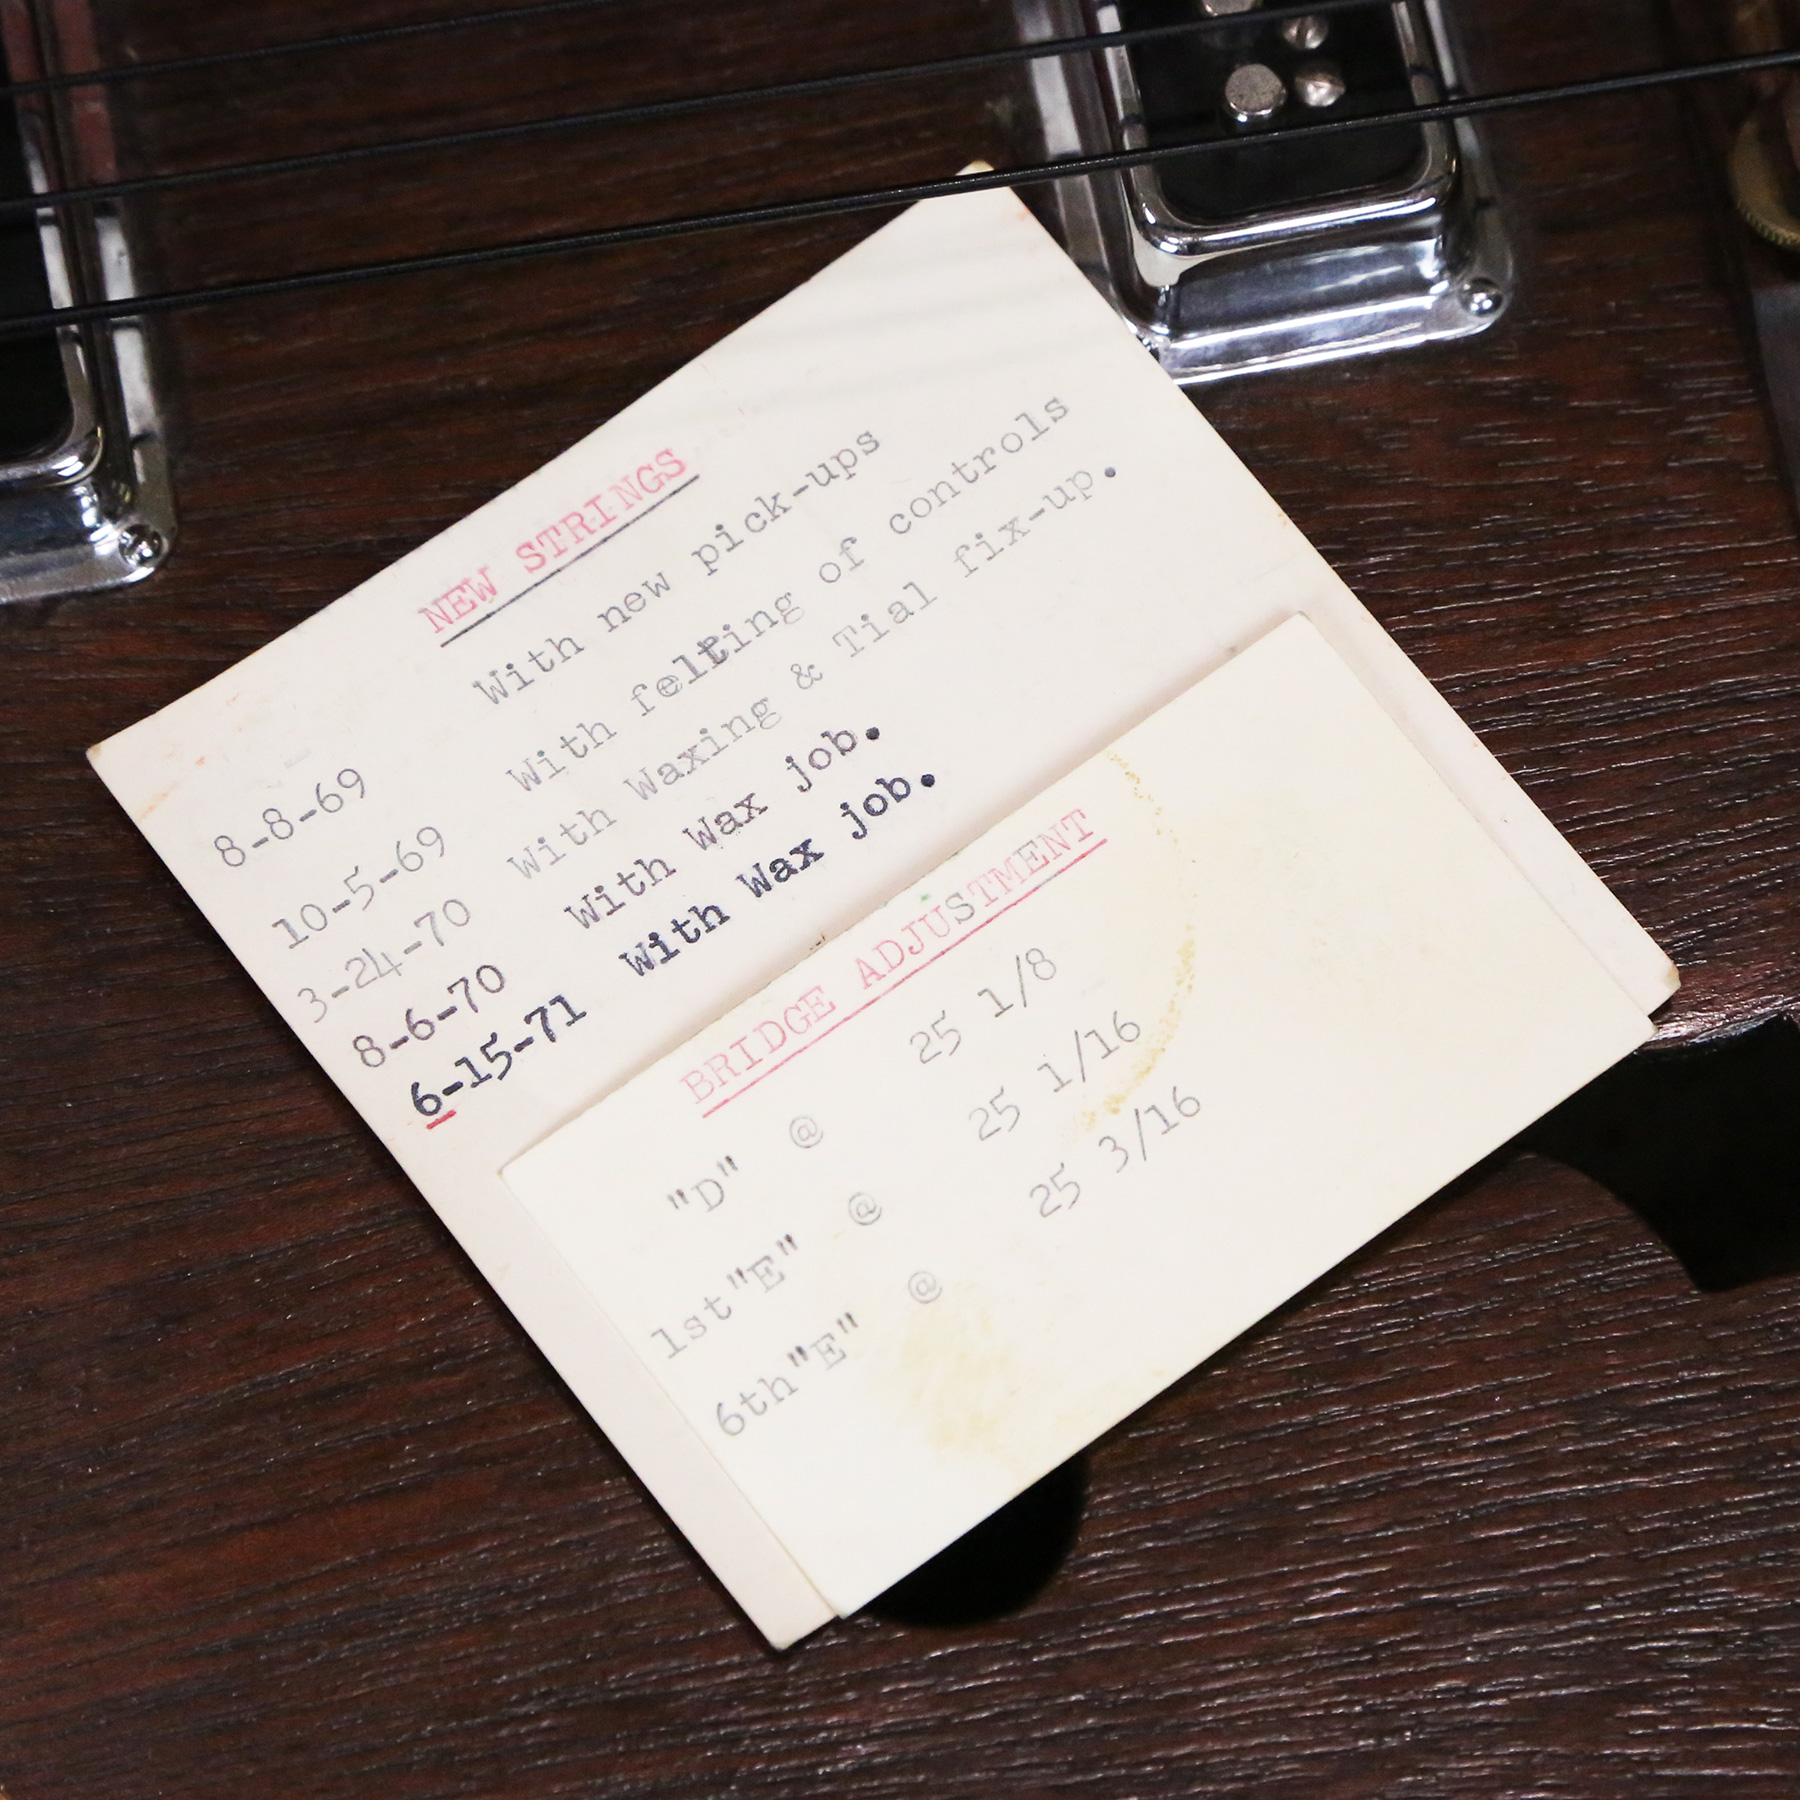 NEW STRINGS
8-8-69 With new pick-ups
10-5-69 With felting of controls
3-24-70 With Waxing & Tial fix-up.
8-6-70 With Wax job.
6-15-71 With Wax job.
BRIDGE ADJUSTMENT
"D" @ 25 1/8
1st"E" @ 25 1/16
6th"E" @ 25 3/16